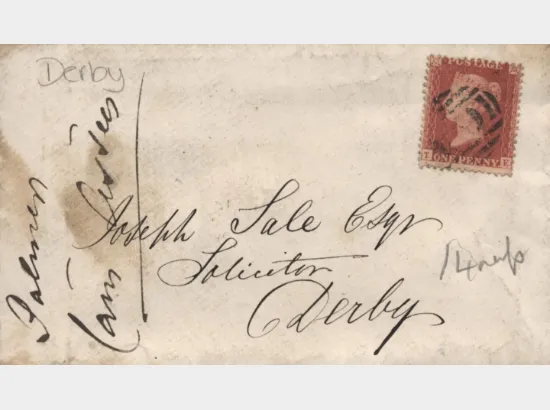 Derby
POSTAGE
ONE PENNY
Joseph Sale Esqr
Solicitor
Derby
Palmer